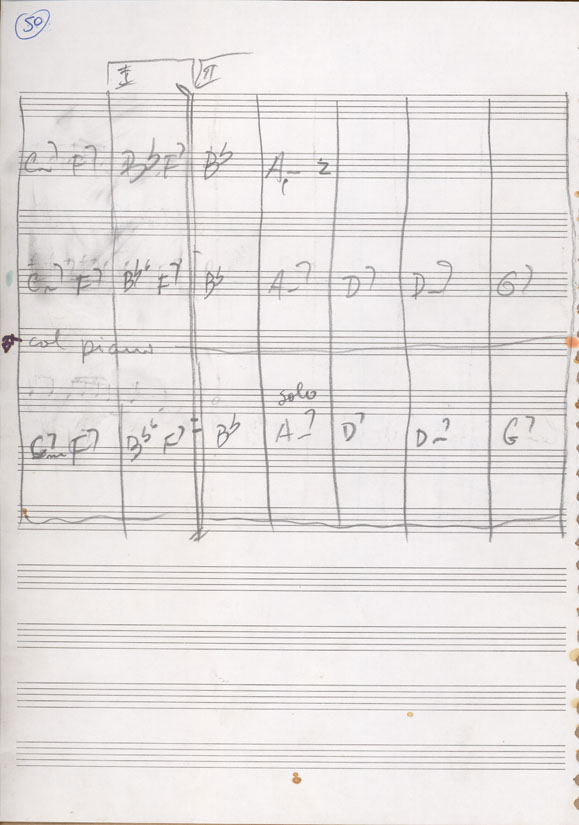 50
I II
C-7 F7 Bb F7 Bb A-
C-7 F7 Bb6 F7 Bb A-7 D7 D-7 G7
col piano
solo
C-7 F7 Bb6 F7 Bb A-7 D7 D-7 G7